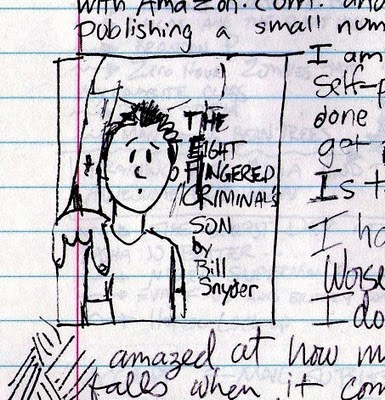 with Amazon.com. and
Publishing a small num
I am
self-p
done
get
Is t
I ha
Worse
I do
THE
EIGHT
FINGERED
CRIMINAL'S
SON
by
Bill
Snyder
amazed at how m
falls when it com